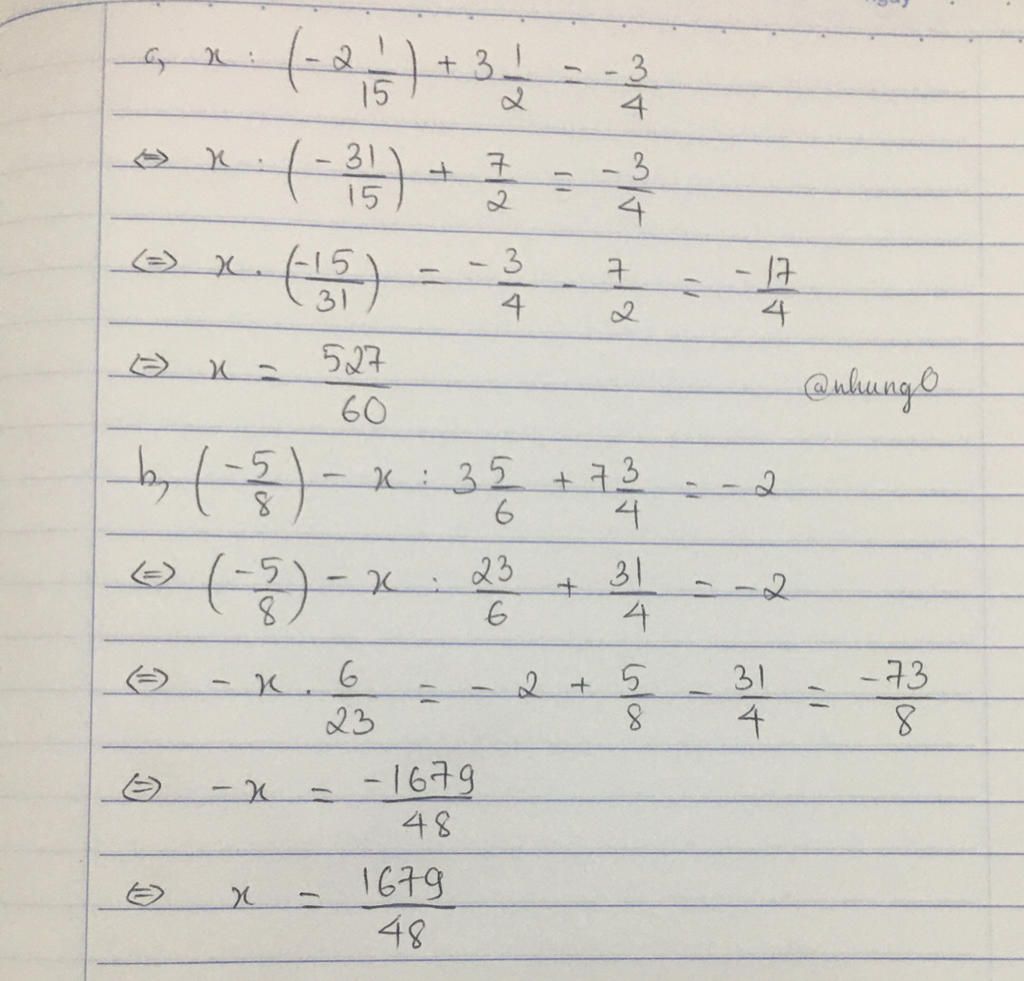 c, x : (-2 1/15) + 3 1/2 = -3/4
⇔ x : (-31/15) + 7/2 = -3/4
⇔ x . (-15/31) = -3/4 - 7/2 = -17/4
⇔ x = 527/60
@nhung0
b, (-5/8) - x : 3 5/6 + 7 3/4 = -2
⇔ (-5/8) - x : 23/6 + 31/4 = -2
⇔ -x . 6/23 = -2 + 5/8 - 31/4 = -73/8
⇔ -x = -1679/48
⇔ x = 1679/48